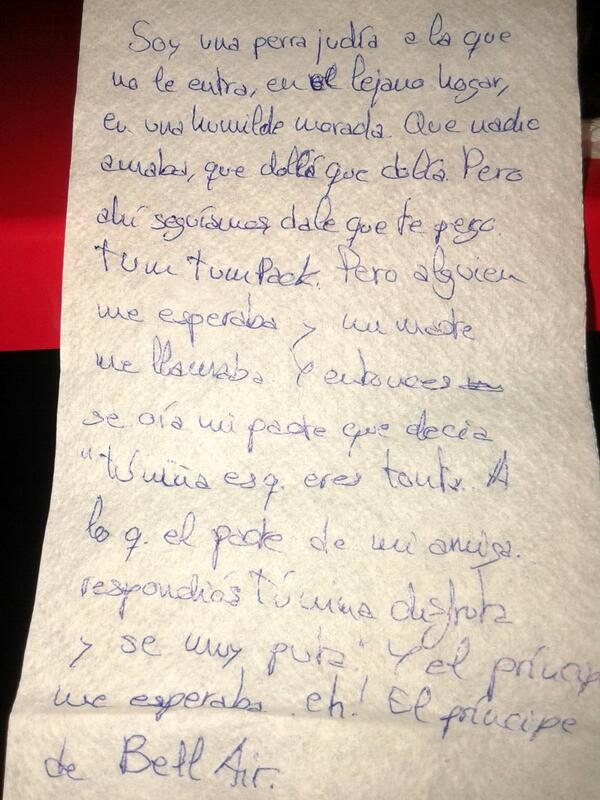 Soy una perra judía a la que
no le entra, en el lejano hogar,
en una humilde morada. Que nadie
amaba, que dolía que dolía. Pero
ahí seguíamos dale que te pego.
tum tum Pack. Pero alguien
me esperaba y mi madre
me llamaba. Y entonces
se oía mi padre que decía
"tú niña es q. eres tonta. A
lo q. el padre de mi amiga.
respondió "Tú nina disfruta
y se muy puta." Y el príncipe
me esperaba. eh! El príncipe
de Bell Air.